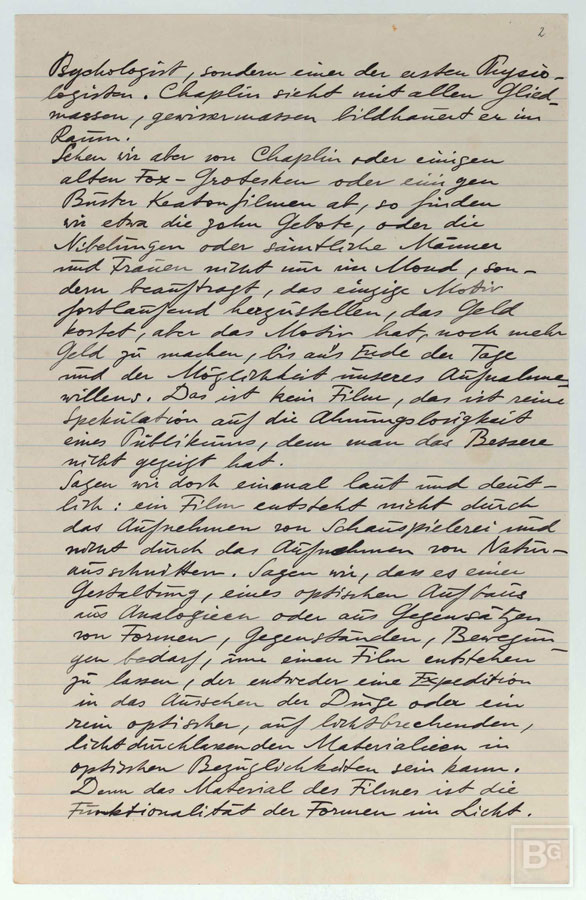 2
Psychologist, sondern einer der ersten Physio-
logisten. Chaplin sieht mit allen Glied-
massen, gewissermassen bildhauert er im
Raum.
Sehen wir aber von Chaplin oder einigen
alten Fox-Grotesken oder einigen
Buster Keatonfilmen ab, so finden
wir etwa die zehn Gebote, oder die
Nibelungen oder sämtliche Männer
und Frauen nicht nur im Mond, son-
dern beauftragt, das einzige Motiv
fortlaufend herzustellen, das Geld
kostet, aber das Motiv hat, noch mehr
Geld zu machen, bis ans Ende der Tage
und der Möglichkeit unseres Aufnahme-
willens. Das ist kein Film, das ist reine
Spekulation auf die Ahnungslosigkeit
eines Publikums, dem man das Bessere
nicht gezeigt hat.
Sagen wir doch einmal laut und deut-
lich: ein Film entsteht nicht durch
das Aufnehmen von Schauspielerei und
nicht durch das Aufnehmen von Natur-
ausschnitten. Sagen wir, dass es einer
Gestaltung, eines optischen Aufbaus
aus Analogieen oder aus Gegensätzen
von Formen, Gegenständen, Bewegun-
gen bedarf, um einen Film entstehen
zu lassen, der entweder eine Expedition
in das Aussehen der Dinge oder ein
rein optischer, auf lichtbrechenden,
lichtdurchlassenden Materialieen in
optischen Bezüglichkeiten sein kann.
Denn das Material des Filmes ist die
Funktionalität der Formen im Licht.
BG